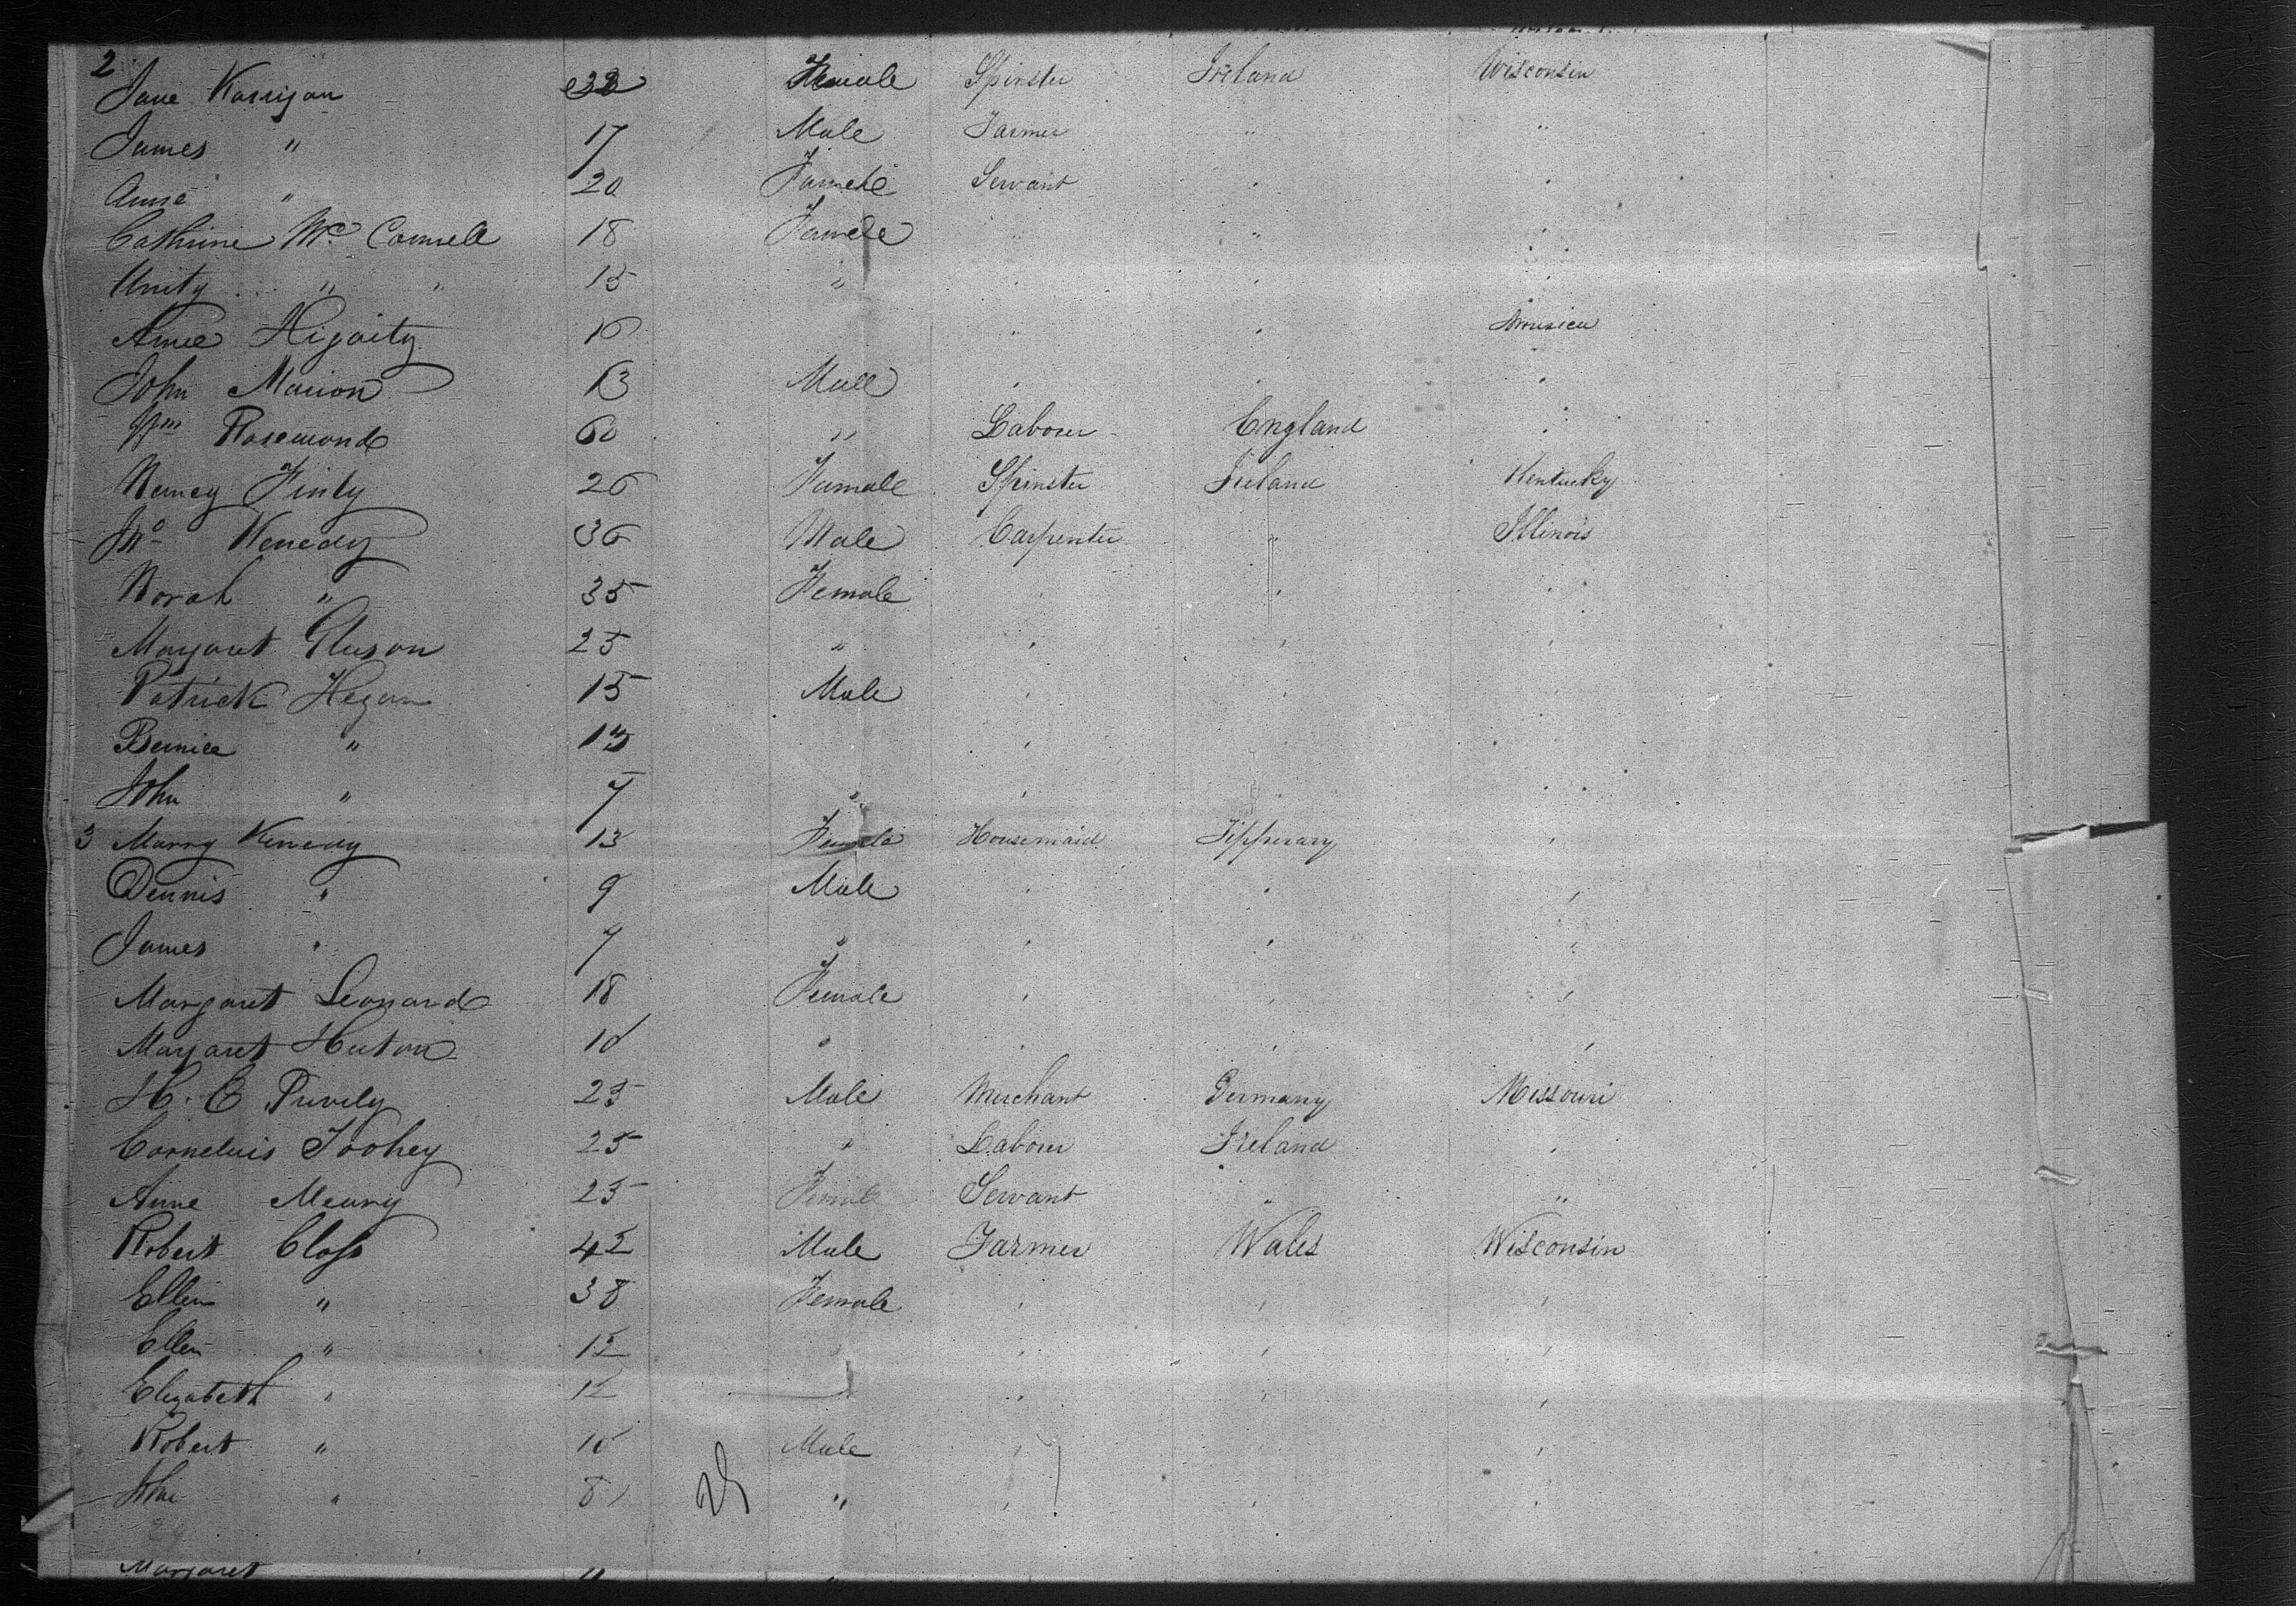 2
Jane Karrigan Female Spinster Ireland Wisconsin
James " 17 Male Farmer " "
Anne " 20 Famele Servant " "
Cathrine Mc Connell 18 Famele " " "
Unity " " 15 " " " "
Anne Higaity 16 " " America
John Marion 13 Male " " "
Wm Rosemond 60 " Labourer England "
Nancy Finly 26 Famale Spinster Ireland Kentucky
Jno Kenedy 36 Male Carpenter " Illinois
Norah " 35 Female " " "
Margaret Gluson 25 " " " "
Patrick Hegan 15 Male " " "
Bernice " 13 " "
John " 7 " " " "
3 Marry Kenedy 13 Female Housemaid Tipperary "
Dennis " 9 Male " " "
James " 7 " " " "
Margaret Leonard 18 Female " " "
Margaret Huton 10 " " " "
H. E Purvely 25 Male Merchant Germany Missouri
Cornelius Toohey 25 " Labourer Ireland "
Anne Meary 25 Female Servant " "
Robert Closs 42 Male Farmer Wales Wisconsin
Ellen " 38 Female " " "
Ellen " 12 " " "
Elizabeth " 12 " " "
Robert " 10 Male " "
John " 8 " " " "
29
Margaret "